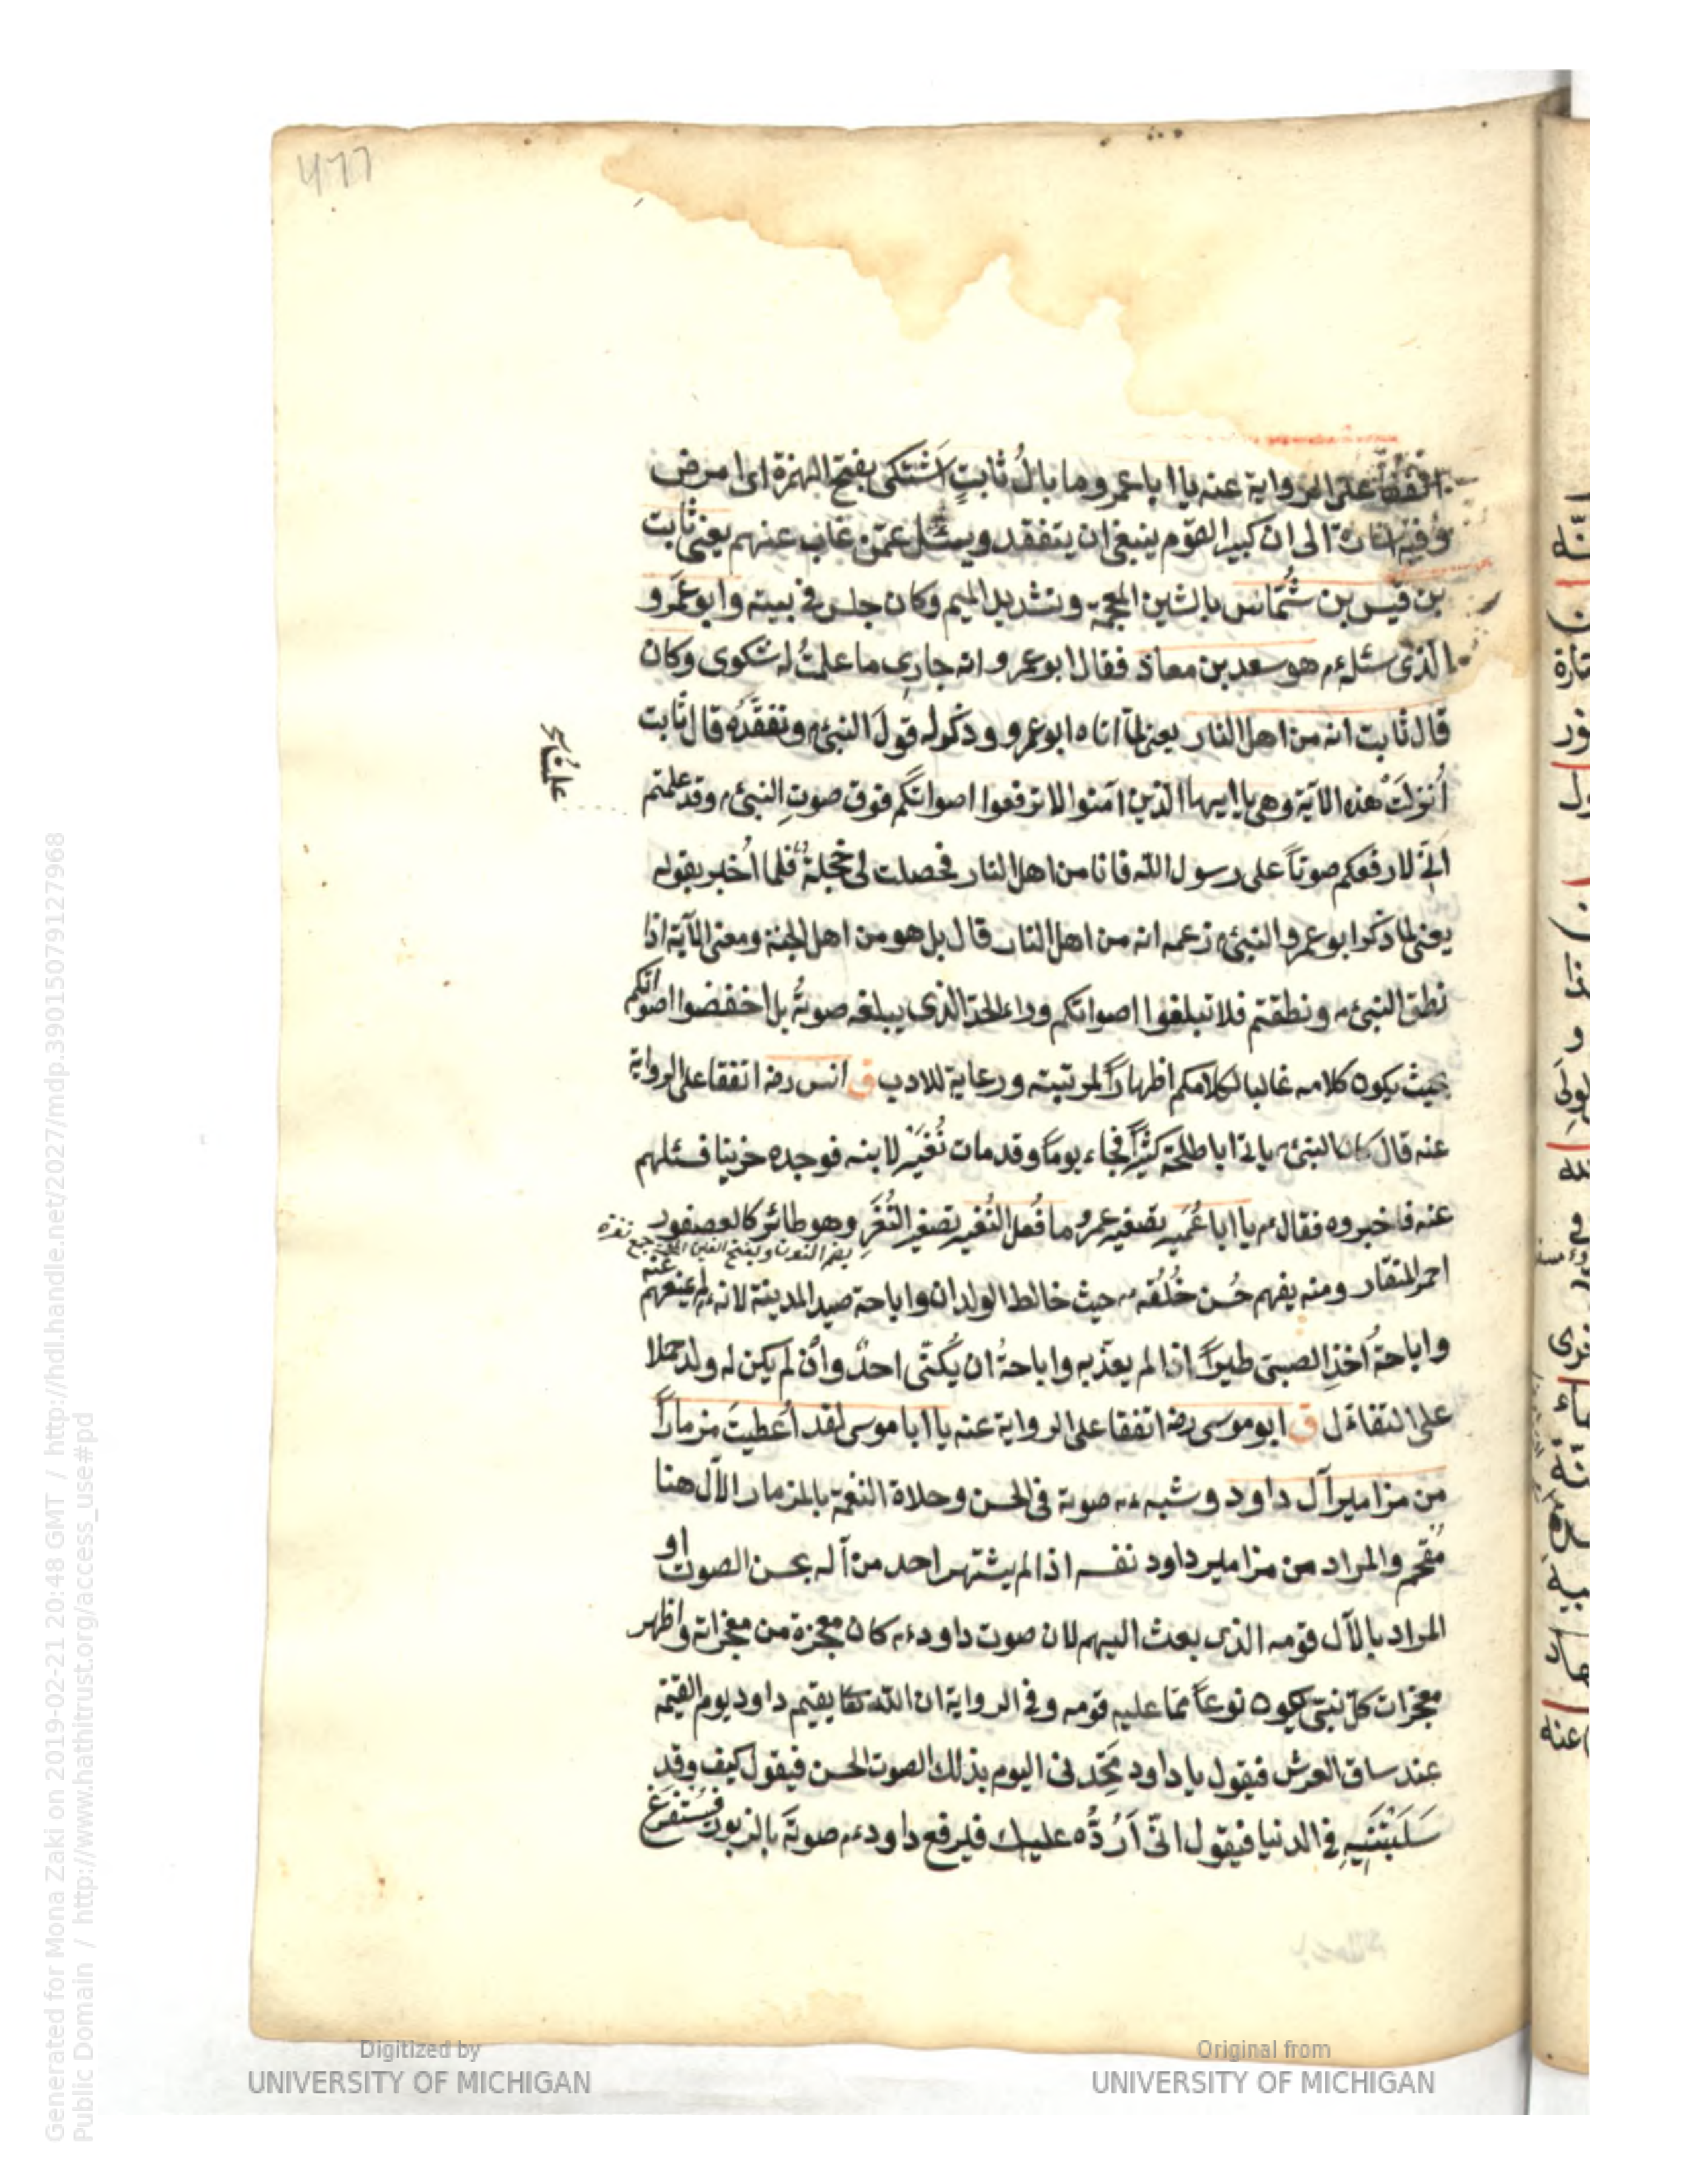 477
اتفقا على الرواية عنه يا ابا عمرو ما بالُ ثابتٍ اَشْتكى بفتح الهمزة اى امرض
وفيه اشارة الى ان كبير القوم ينبغى ان يتفقد ويسئل عمّن غاب عنهم يعنى ثابت
بن قيس بن شَمّاس بالشين المعجمة وتشديد الميم وكان جلس فى بيته وابو عَمرو
الذى سئله م هو سعد بن معاذ فقال ابو عمرو انه جارى ما علمتُ له شكوى وكان
قال ثابت انه من اهل النار يعنى لمّا اتاه ابو عمرو وذكر له قولَ النبى م وتفقّدَه قال ثابت
اُنزلَتْ هذه الآية وهى يا ايها الذين آمنوا لا ترفعوا اصواتكم فوق صوتِ النبى م وقد علمتم
انّى لارفعكم صوتاً على رسول الله فانا من اهل النار فحصلت لى خجلة فلما اُخبر بقوله
يعنى لما ذكر ابو عمرو النبى م زعمه انه من اهل النار قال بل هو من اهل الجنة ومعنى الآية اذا
نطق النبى م ونطقتم فلا تبلغوا اصواتكم وراء الحدّ الذى يبلغه صوتُه بل اخفضوا اصواتكم
بحيث يكون كلامه غالبا لكلامكم اظهاراً لمرتبته ورعاية للادب ق انس رضه اتفقا على الرواية
عنه قال كان النبى م يأتى ابا طلحة كثيراً فجاء يوماً وقد مات نُغَيْر لابنه فوجده حزينا فسئلهم
عنه فاخبروه فقال م يا ابا عُمَير تصغير عمرو ما فَعل النُغَير تصغير النُّغَرِ وهو طائر كالعصفور
بضم النون وبفتح الغين المعجمة جمع نغرة
احمر المنقار ومنه يفهم حُسن خُلُقه م حيث خالط الولدان واباحة صيد المدينة لانه م لم يمنعهم عنه
واباحةُ اخذِ الصبىّ طيراً اذا لم يعذّبه واباحةُ ان يُكنّى احدٌ وان لم يكن له ولد حملا
على التفاءل ق ابو موسى رضه اتفقا على الرواية عنه يا ابا موسى لقد اُعطيتَ مزماراً
من مزامير آل داود وشبه م صوته فى الحسن وحلاة النغمة بالمزمار الآل هنا
مُقحم والمراد من مزامير داود نفسه اذا لم يشتهر احد من آله بحسن الصوت او
المراد بالآل قومه الذى بعث اليهم لان صوت داود ءم كان معجزة من معجزاته واظهر
معجزات كلّ نبىّ يكون نوعاً ممّا عليه قومه وفى الرواية ان الله تعا يقيم داود يوم القيمة
عند ساق العرش فيقول يا داود مَجّدنى اليوم بذلك الصوت الحسن فيقول كيف وقد
سَلَبْتَنيهِ فى الدنيا فيقول انّى اَرُدُّه عليك فيرفع داود ءم صوتَه بالزبور فيُستفرغ
Digitized by
UNIVERSITY OF MICHIGAN
Original from
UNIVERSITY OF MICHIGAN
Generated for Mona Zaki on 2019-02-21 20:48 GMT / http://hdl.handle.net/2027/mdp.39015079127968
Public Domain / http://www.hathitrust.org/access_use#pd